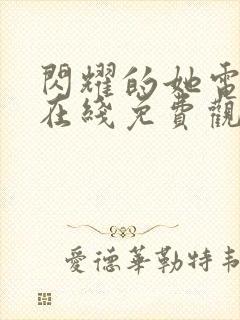 閃耀的她電
在綫免費觀
愛德華勒特韋